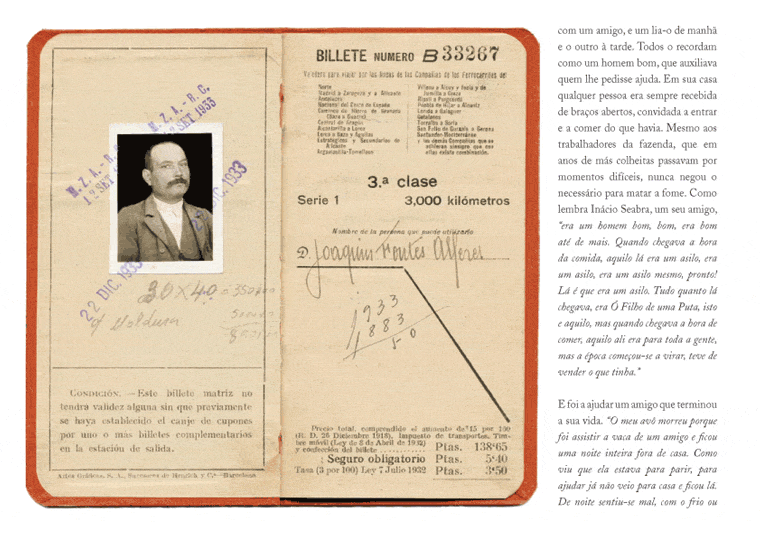 M. Z. A. - R. C.
12 SET 1933
M. Z. A. - R. C.
12 SET 1933
22 DIC. 1933
22 DIC. 1933
30 x 40
CONDICIÓN. — Este billete matriz no
tendrá validez alguna sin que previamente
se haya establecido el canje de cupones
por uno o más billetes complementarios
en la estación de salida.
BILLETE NUMERO B 33267
Valedero para viajar por las líneas de las Compañías de los Ferrocarriles del
Norte
Madrid a Zaragoza y a Alicante
Andaluces
Nacional del Oeste de España
Central de Aragón
Alcantarilla a Lorca
Lorca a Baza y Aguilas
Estratégicos y Secundarios de
Alicante
Argamasilla-Tomelloso
Villena a Alcoy y Yecla y de
Jumilla a Cieza
Ripoll a Puigcerdá
Puebla de Híjar a Alcañiz
Catalanes
Torralba a Soria
San Feliu de Guixols a Gerona
Santander-Mediterráneo
y las demás Compañías que se
adhieran siempre que con
ellas exista combinación.
3.ª clase
Serie 1 3,000 kilómetros
Nombre de la persona que puede utilizarlo
D. Joaquim Fontes Alferes
1933
1883
50
Precio total, comprendido el aumento de 15 por 100
(R. D. 26 Diciembre 1918), impuesto de transportes, Tim-
bre móvil (Ley de 8 de Abril de 1932)
y confección del billete Ptas. 138'65
Seguro obligatorio Ptas. 5'40
Tasa (3 por 100) Ley 7 Julio 1932 Ptas. 3'50
com um amigo, e um lia-o de manhã
e o outro à tarde. Todos o recordam
como um homem bom, que auxiliava
quem lhe pedisse ajuda. Em sua casa
qualquer pessoa era sempre recebida
de braços abertos, convidada a entrar
e a comer do que havia. Mesmo aos
trabalhadores da fazenda, que em
anos de más colheitas passavam por
momentos difíceis, nunca negou o
necessário para matar a fome. Como
lembra Inácio Seabra, um seu amigo,
"era um homem bom, bom, era bom
até de mais. Quando chegava a hora
da comida, aquilo lá era um asilo, era
um asilo, era um asilo mesmo, pronto!
Lá é que era um asilo. Tudo quanto lá
chegava, era Ó Filho de uma Puta, isto
e aquilo, mas quando chegava a hora de
comer, aquilo ali era para toda a gente,
mas a época começou-se a virar, teve de
vender o que tinha."
E foi a ajudar um amigo que terminou
a sua vida. "O meu avô morreu porque
foi assistir a vaca de um amigo e ficou
uma noite inteira fora de casa. Como
viu que ela estava para parir, para
ajudar já não veio para casa e ficou lá.
De noite sentiu-se mal, com o frio ou